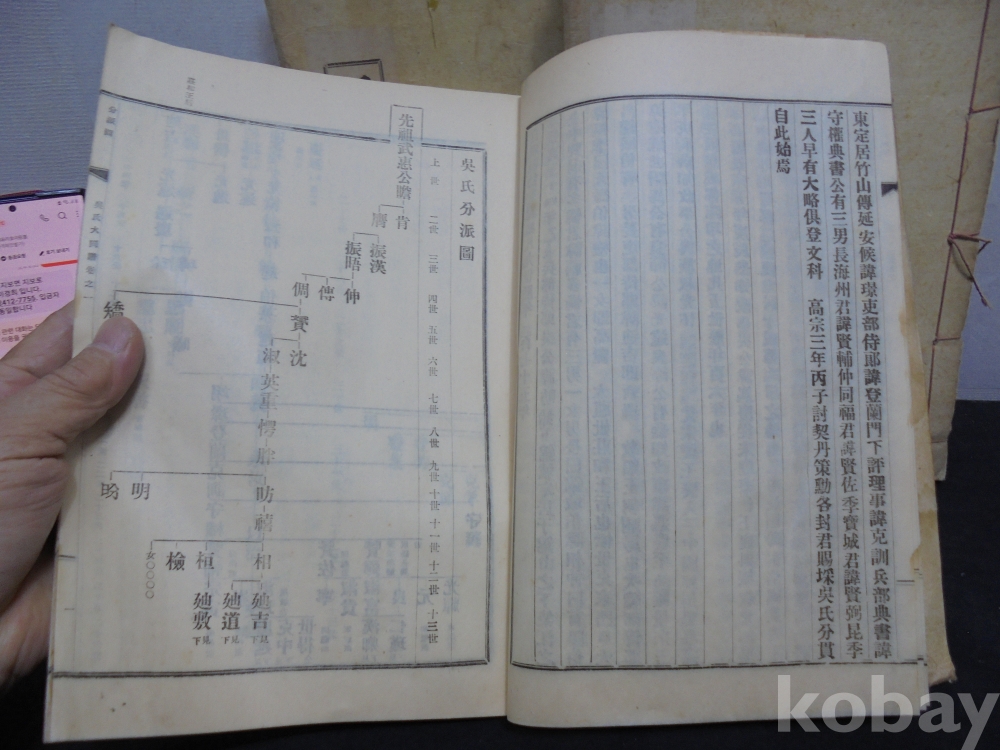 東定居竹山傳延安候諱璟吏部侍郎諱登蘭門下評理事諱克訓兵部典書諱
守權典書公有三男長海州君諱賢輔仲同福君諱賢佐季寶城君諱賢弼昆季
三人早有大略俱登文科 高宗三年丙子討契丹策勳各封君賜埰吳氏分貫
自此始焉
吳氏分派圖
上世 二世 三世 四世 五世 六世 七世 八世 九世 十世 十一世 十二世 十三世
先祖武惠公瞻
肯
膺
振漢
振晤
伸
傳
倜
賛
沈
淑
英
愕
昉
明
昑
相
桓
檢
女〇〇〇〇
廸吉 見下
廸道 見下
廸敷 見下
吳氏大同譜卷之一
412-7755. 입금자
kobay